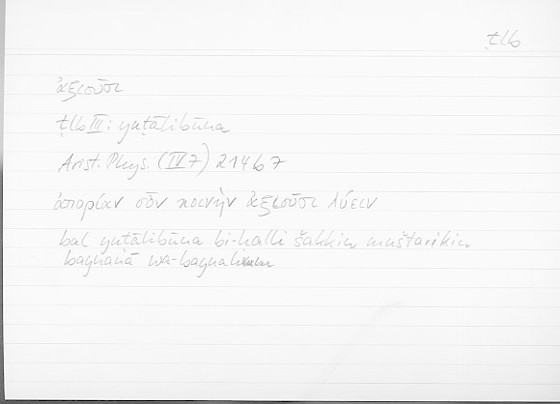 ṭlb
ἀξιοῦσι
ṭlb III: yuṭālibūna
Arist. Phys. (IV 7) 214 b 7
ἀπορίαν οὖν κοινὴν ἀξιοῦσι λύειν
bal yuṭālibūna bi-ḥalli šakkin muštarikin
baynanā wa-baynahum